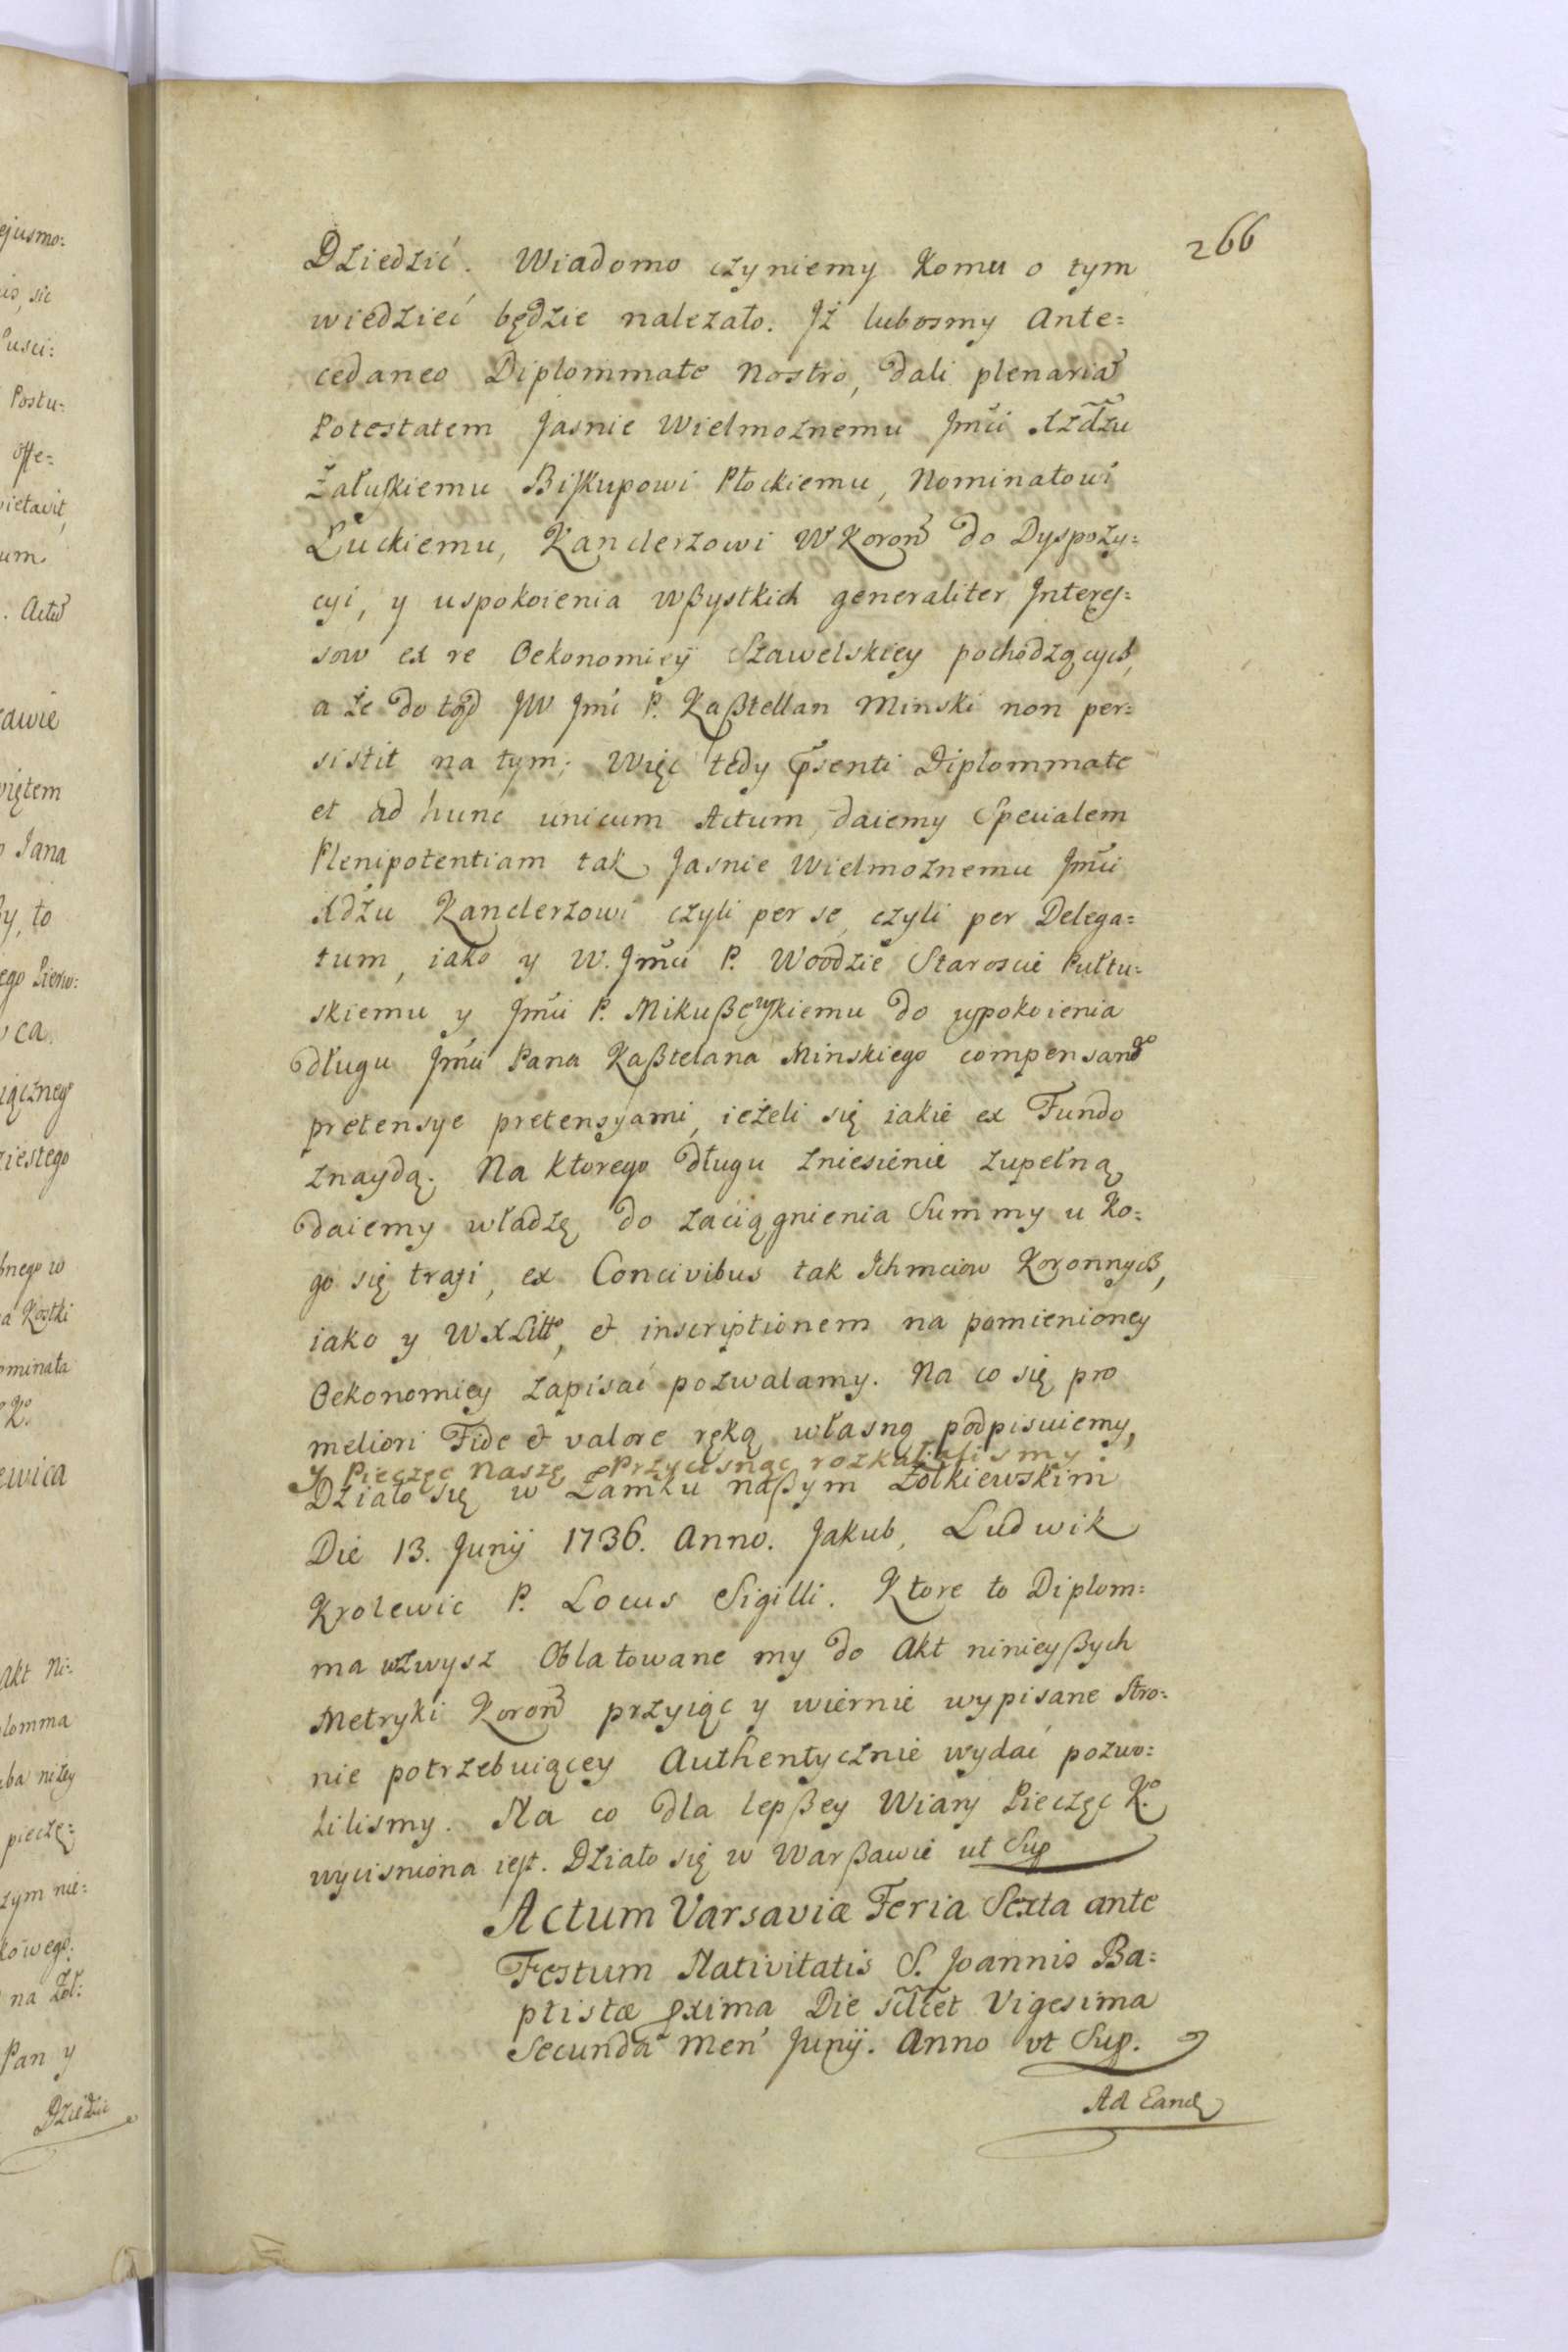 266
Dziedzić. Wiadomo czyniemy Komu o tym
wiedzieć będzie nalezało. Jż lubosmy Ante=
cedaneo Diplommate Nostro, dali plenariã
Potestatem Jasnie Wielmoznemu Jmũi Xzdzu
Załuskiemu Biskupowi Płockiemu, Nominatowi
Łuckiemu, Kanclerzowi WKoron̄ do Dyspozy=
cyi, y uspokoienia wßystkich generaliter Interes=
sow ex re Oekonomiey Szawelskiey pochodzących,
a że do tąd JW Jmi P. Kaßtellan Minski non per=
sistit na tym; Więc tedy p̃senti Diplommate
et ad hunc unicum Actum, daiemy Specialem
Plenipotentiam tak Jasnie Wielmoznemu Jmũi
Xdzu Kanclerzowi czyli per se, czyli per Delega=
tum, iako y W. Jmũi P. Woodzie Staroscie Pułtu=
skiemu y Jmũi P. Mikußewskiemu do uspokoienia
długu Jmũi Pana Kaßtelana Minskiego compensando
pretensye pretensyami, ieżeli się iakie ex Fundo
znaydą. Na ktorego długu zniesienie zupełną
daiemy władzę do zaciągnienia Summy u ko=
go się trafi, ex Concivibus tak Ichmciow Koronnych,
iako y WXLitto, et inscriptionem na pomienioney
Oekonomiey zapisać pozwalamy. Na co się pro
meliori Fide et valore ręką własną podpisuiemy,
y Pieczęc Naszę Przycisnąc rozkazalismy.
Działo się w Zamku naßym Żołkiewskim
Die 13. Junij 1736. Anno. Jakub, Ludwik
Krolewic P. Locus Sigilli. Ktore to Diplom=
ma wzwysz Oblatowane my do Akt ninieyßych
Metryki Koron̄ przyiąc y wiernie wypisane Stro=
nie potrzebuiącey Authentycznie wydać pozwo=
lilismy. Na co dla lepßey Wiary Pieczęc K.o
wycisniona iest. Działo się w Warßawie ut Sup
Actum Varsaviæ Feria Sexta ante
Festum Nativitatis S. Joannis Ba=
ptistæ p̱xima Die scilcet Vigesima
Secunda Men' Junij. Anno ut Sup.
Ad Eand